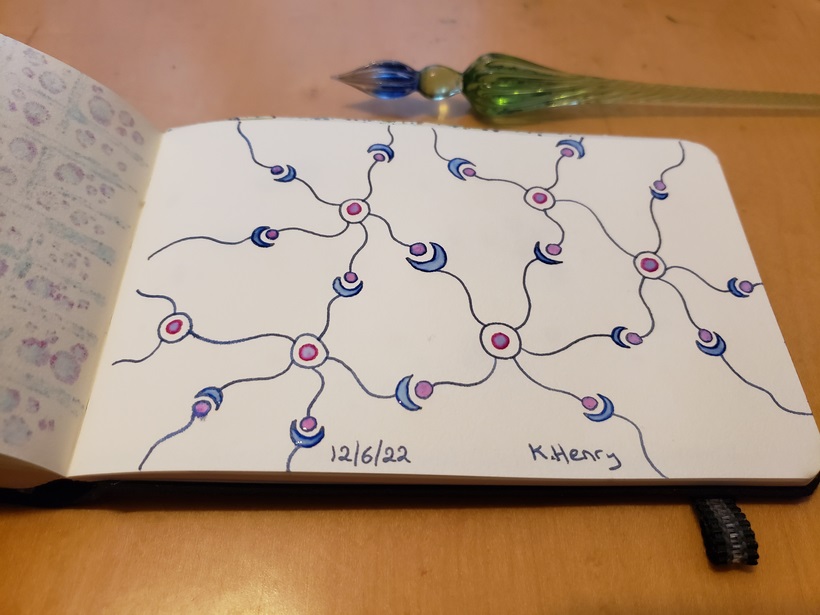 12/6/22
K.Henry